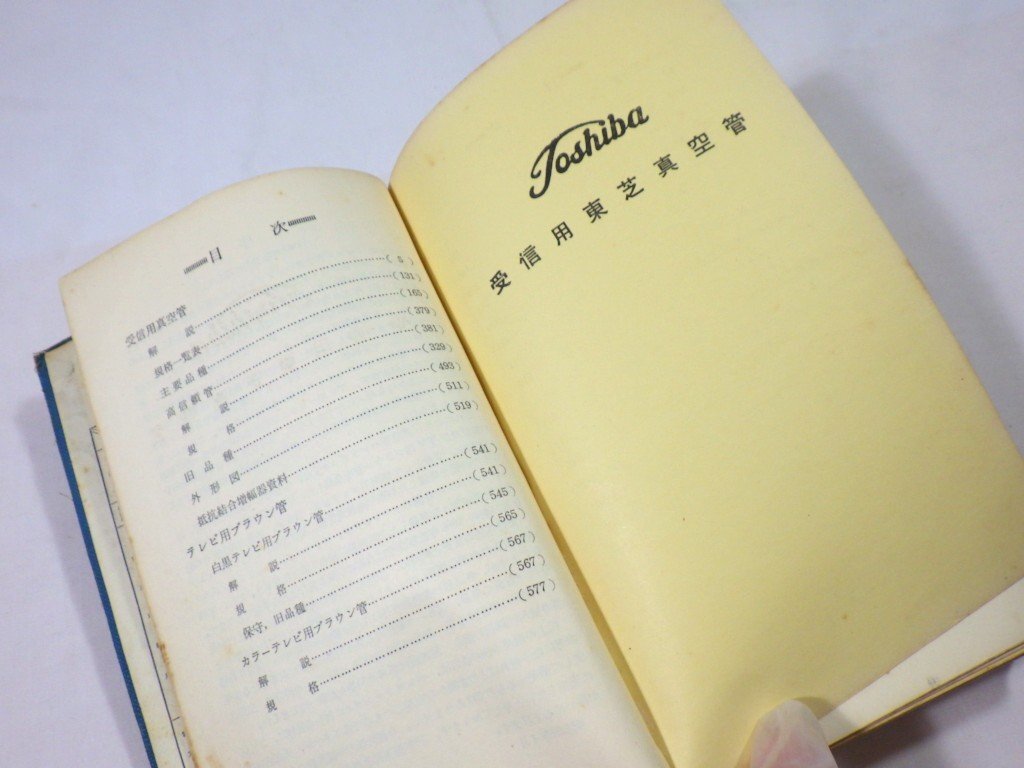 目次
受信用真空管
解説……(5)
規格一覧表……(131)
主要品種……(165)
高信頼管……(379)
解説……(381)
規格……(329)
旧品種……(493)
外形図……(511)
抵抗結合増幅器資料……(519)
テレビ用ブラウン管
白黒テレビ用ブラウン管……(541)
解説……(541)
規格……(545)
保守、旧品種……(565)
カラーテレビ用ブラウン管……(567)
解説……(567)
規格……(577)
Toshiba
受信用東芝真空管